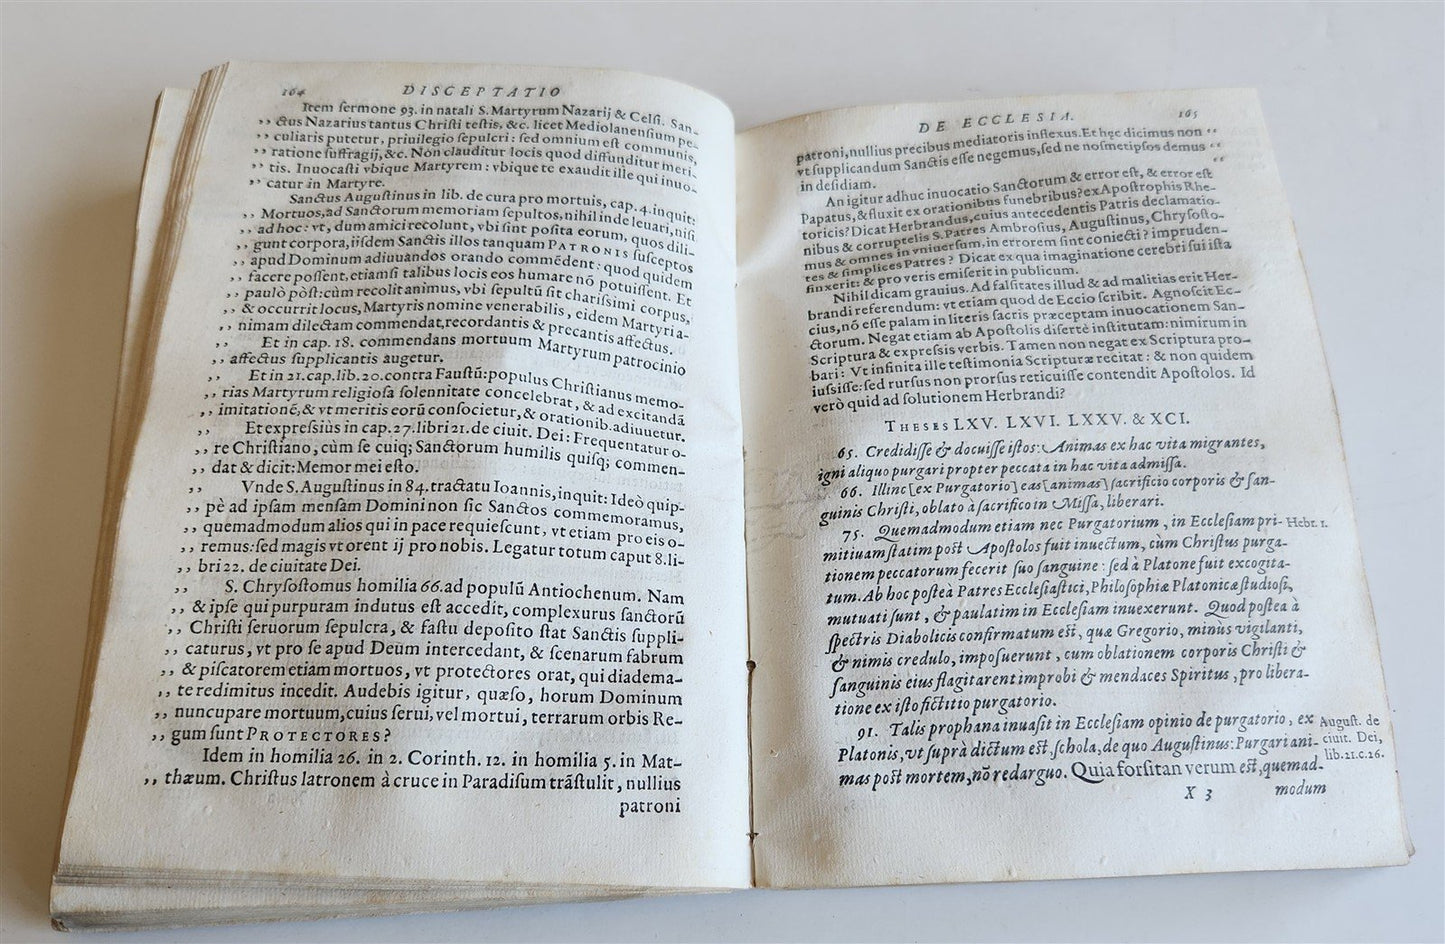 164 DISCEPTATIO
Item sermone 93. in natali S. Martyrum Nazarij & Celsi. San-
,, ctus Nazarius tantus Christi testis, &c. licet Mediolanensium pe-
,, culiaris putetur, priuilegio sepulcri: sed omnium est communis,
,, ratione suffragij, &c. Non clauditur locis quod diffunditur meri-
,, tis. Inuocasti vbique Martyrem: vbique te exaudit ille qui inuo-
,, catur in Martyre.
Sanctus Augustinus in lib. de cura pro mortuis, cap. 4. inquit:
,, Mortuos, ad Sanctorum memoriam sepultos, nihil inde leuari, nisi
,, ad hoc: vt, dum amici recolunt, vbi sint posita eorum, quos dili-
,, gunt corpora, iisdem Sanctis illos tanquam PATRONIS susceptos
,, apud Dominum adiuuandos orando commēdent: quod quidem
,, facere possent, etiamsi talibus locis eos humare nō potuissent. Et
,, paulò pòst: cùm recolit animus, vbi sepultū sit charissimi corpus,
,, & occurrit locus, Martyris nomine venerabilis, eidem Martyri a-
,, nimam dilectam commendat, recordantis & precantis affectus.
,, Et in cap. 18. commendans mortuum Martyrum patrocinio
,, affectus supplicantis augetur.
,, Et in 21. cap. lib. 20. contra Faustū: populus Christianus memo-
,, rias Martyrum religiosa solennitate concelebrat, & ad excitandā
,, imitationē, & vt meritis eorū consocietur, & orationib. adiuuetur.
,, Et expressiùs in cap. 27. libri 21. de ciuit. Dei: Frequentatur o-
,, re Christiano, cùm se cuiq; Sanctorum humilis quisq; commen-
,, dat & dicit: Memor mei esto.
,, Vnde S. Augustinus in 84. tractatu Ioannis, inquit: Ideò quip-
,, pè ad ipsam mensam Domini non sic Sanctos commemoramus,
,, quemadmodum alios qui in pace requiescunt, vt etiam pro eis o-
,, remus: sed magis vt orent ij pro nobis. Legatur totum caput 8. li-
,, bri 22. de ciuitate Dei.
,, S. Chrysostomus homilia 66. ad populū Antiochenum. Nam
,, & ipse qui purpuram indutus est accedit, complexurus sanctorū
,, Christi seruorum sepulcra, & fastu deposito stat Sanctis suppli-
,, caturus, vt pro se apud Deum intercedant, & scenarum fabrum
,, & piscatorem etiam mortuos, vt protectores orat, qui diadema-
,, te redimitus incedit. Audebis igitur, quæso, horum Dominum
,, nuncupare mortuum, cuius serui, vel mortui, terrarum orbis Re-
,, gum sunt PROTECTORES?
Idem in homilia 26. in 2. Corinth. 12. in homilia 5. in Mat-
,, thæum. Christus latronem à cruce in Paradisum trāstulit, nullius
patroni
DE ECCLESIA. 165
patroni, nullius precibus mediatoris inflexus. Et hęc dicimus non “
vt supplicandum Sanctis esse negemus, sed ne nosmetipsos demus “
in desidiam. “
An igitur adhuc inuocatio Sanctorum & error est, & error est
Papatus, & fluxit ex orationibus funebribus? ex Apostrophis Rhe-
toricis? Dicat Herbrandus, cuius antecedentis Patris declamatio-
nibus & corruptelis S. Patres Ambrosius, Augustinus, Chrysosto-
mus & omnes in vniuersum, in errorem sint coniecti? impruden-
tes & simplices Patres? Dicat ex qua imaginatione cerebri sui ista
finxerit: & pro veris emiserit in publicum.
Nihil dicam grauius. Ad falsitates illud & ad malitias erit Her-
brandi referendum: vt etiam quod de Eccio scribit. Agnoscit Ec-
cius, nō esse palam in literis sacris præceptam inuocationem San-
ctorum. Negat etiam ab Apostolis disertè institutam: nimirum in
Scriptura & expressis verbis. Tamen non negat ex Scriptura pro-
bari: Vt infinita ille testimonia Scripturæ recitat: & non quidem
iussisse: sed rursus non prorsus reticuisse contendit Apostolos. Id
verò quid ad solutionem Herbrandi?
THESES LXV. LXVI. LXXV. & XCI.
65. Credidisse & docuisse istos: Animas ex hac vita migrantes,
igni aliquo purgari propter peccata in hac vita admissa.
66. Illinc [ex Purgatorio] eas [animas] sacrificio corporis & san-
guinis Christi, oblato à sacrifico in Missa, liberari.
75. Quemadmodum etiam nec Purgatorium, in Ecclesiam pri- Hebr. 1.
mitiuam statim pòst Apostolos fuit inuectum, cùm Christus purga-
tionem peccatorum fecerit suo sanguine: sed à Platone fuit excogita-
tum. Ab hoc posteà Patres Ecclesiastici, Philosophiæ Platonicæ studiosi,
mutuati sunt, & paulatim in Ecclesiam inuexerunt. Quod postea à
spectris Diabolicis confirmatum est, quæ Gregorio, minùs vigilanti,
& nimis credulo, imposuerunt, cum oblationem corporis Christi &
sanguinis eius flagitarent improbi & mendaces Spiritus, pro libera-
tione ex isto fictitio purgatorio.
91. Talis prophana inuasit in Ecclesiam opinio de purgatorio, ex August. de
Platonis, vt suprà dictum est, schola, de quo Augustinus: Purgari ani- ciuit. Dei,
mas post mortem, nō redarguo. Quia forsitan verum est, quemad- lib. 21. c. 26.
X 3 modum